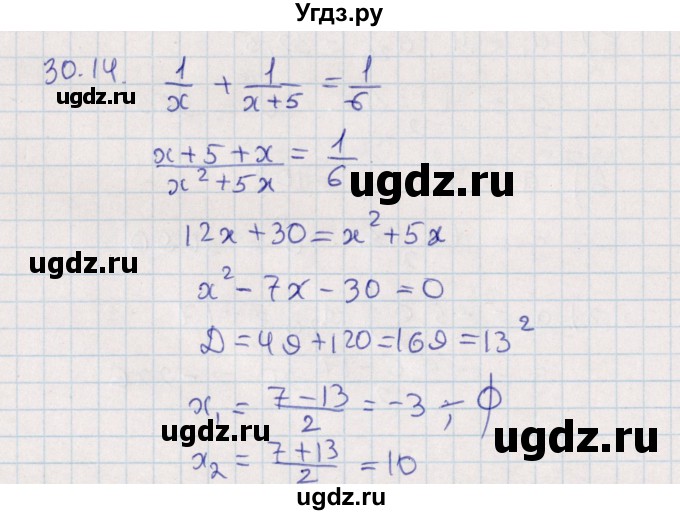 Угдз.ру
30.14. 1/x + 1/(x+5) = 1/6
ugdz.ru
(x+5+x)/(x²+5x) = 1/6
ugdz.ru
12x+30=x²+5x
ugdz.ru
x²-7x-30=0
Д=49+120=169=13²
ugdz.ru
x₁ = (7-13)/2 = -3 ; ϕ
ugdz.ru
x₂ = (7+13)/2 = 10
ugdz.ru
ugdz.ru